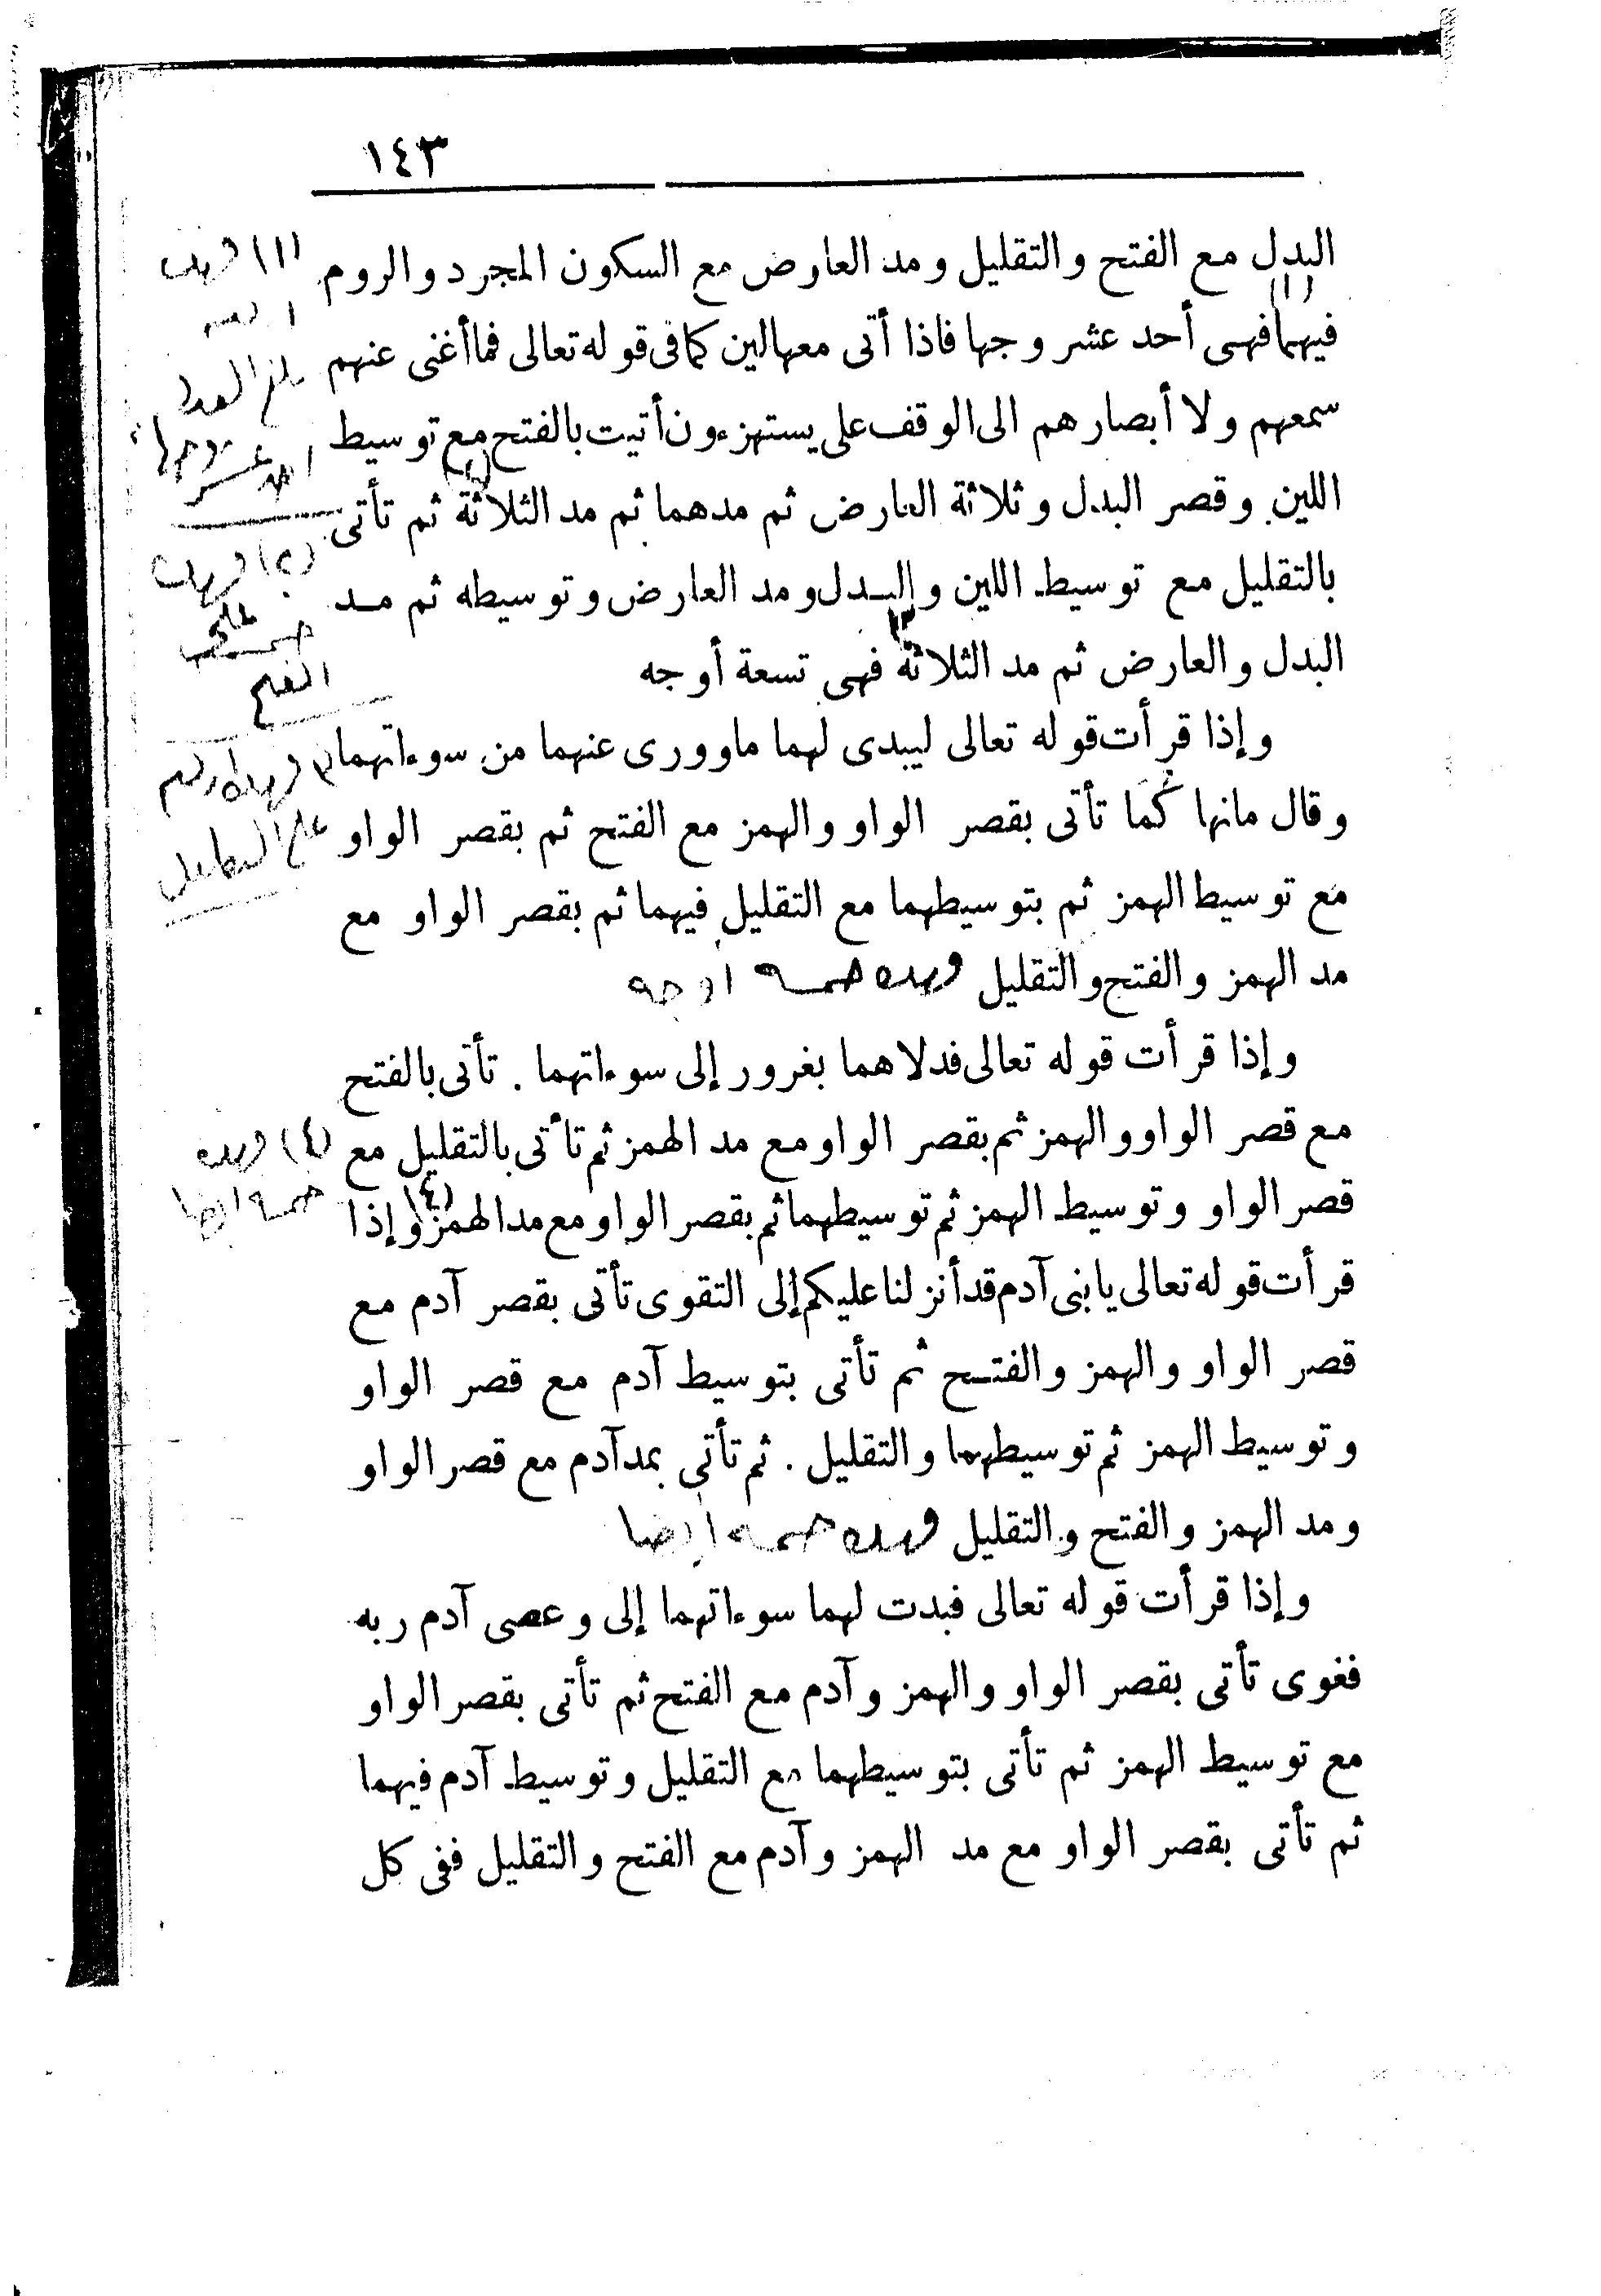 ١٤٣
البدل مع الفتح والتقليل ومد العارض مع السكون المجرد والروم
(١)
فيهما فهى أحد عشر وجها فاذا أتى معها لين كما فى قوله تعالى فما أغنى عنهم
سمعهم ولا أبصارهم الى الوقف على يستهزءون أتيت بالفتح مع توسيط
(٢)
اللين وقصر البدل وثلاثة العارض ثم مدهما ثم مد الثلاثة ثم تأتى
بالتقليل مع توسيط اللين والبدل ومد العارض وتوسيطه ثم مد
٣
البدل والعارض ثم مد الثلاثة فهى تسعة أوجه
وإذا قرأت قوله تعالى ليبدى لهما ماوورى عنهما من سوءاتهما
وقال مانها كما تأتى بقصر الواو والهمز مع الفتح ثم بقصر الواو
مع توسيط الهمز ثم بتوسيطهما مع التقليل فيهما ثم بقصر الواو مع
مد الهمز والفتح والتقليل وبهذه خمسة أوجه
وإذا قرأت قوله تعالى فدلاهما بغرور إلى سوءاتهما . تأتى بالفتح
مع قصر الواو والهمز ثم بقصر الواو مع مد الهمز ثم تأتى بالتقليل مع
قصر الواو وتوسيط الهمز ثم توسيطهما ثم بقصر الواو مع مد الهمز (٤) وإذا
قرأت قوله تعالى يا بنى آدم قد أنزلنا عليكم إلى التقوى تأتى بقصر آدم مع
قصر الواو والهمز والفتح ثم تأتى بتوسيط آدم مع قصر الواو
وتوسيط الهمز ثم توسيطهما والتقليل . ثم تأتى بمد آدم مع قصر الواو
ومد الهمز والفتح والتقليل وبهذه خمسة أيضا
وإذا قرأت قوله تعالى فبدت لهما سوءاتهما إلى وعصى آدم ربه
فغوى تأتى بقصر الواو والهمز وآدم مع الفتح ثم تأتى بقصر الواو
مع توسيط الهمز ثم تأتى بتوسيطهما مع التقليل وتوسيط آدم فيهما
ثم تأتى بقصر الواو مع مد الهمز وآدم مع الفتح والتقليل ففى كل
(١)
احد عشر وجها
(٢)
على
الفتح
٣
على التقليل
(٤) وبهذه
خمسة ايضا